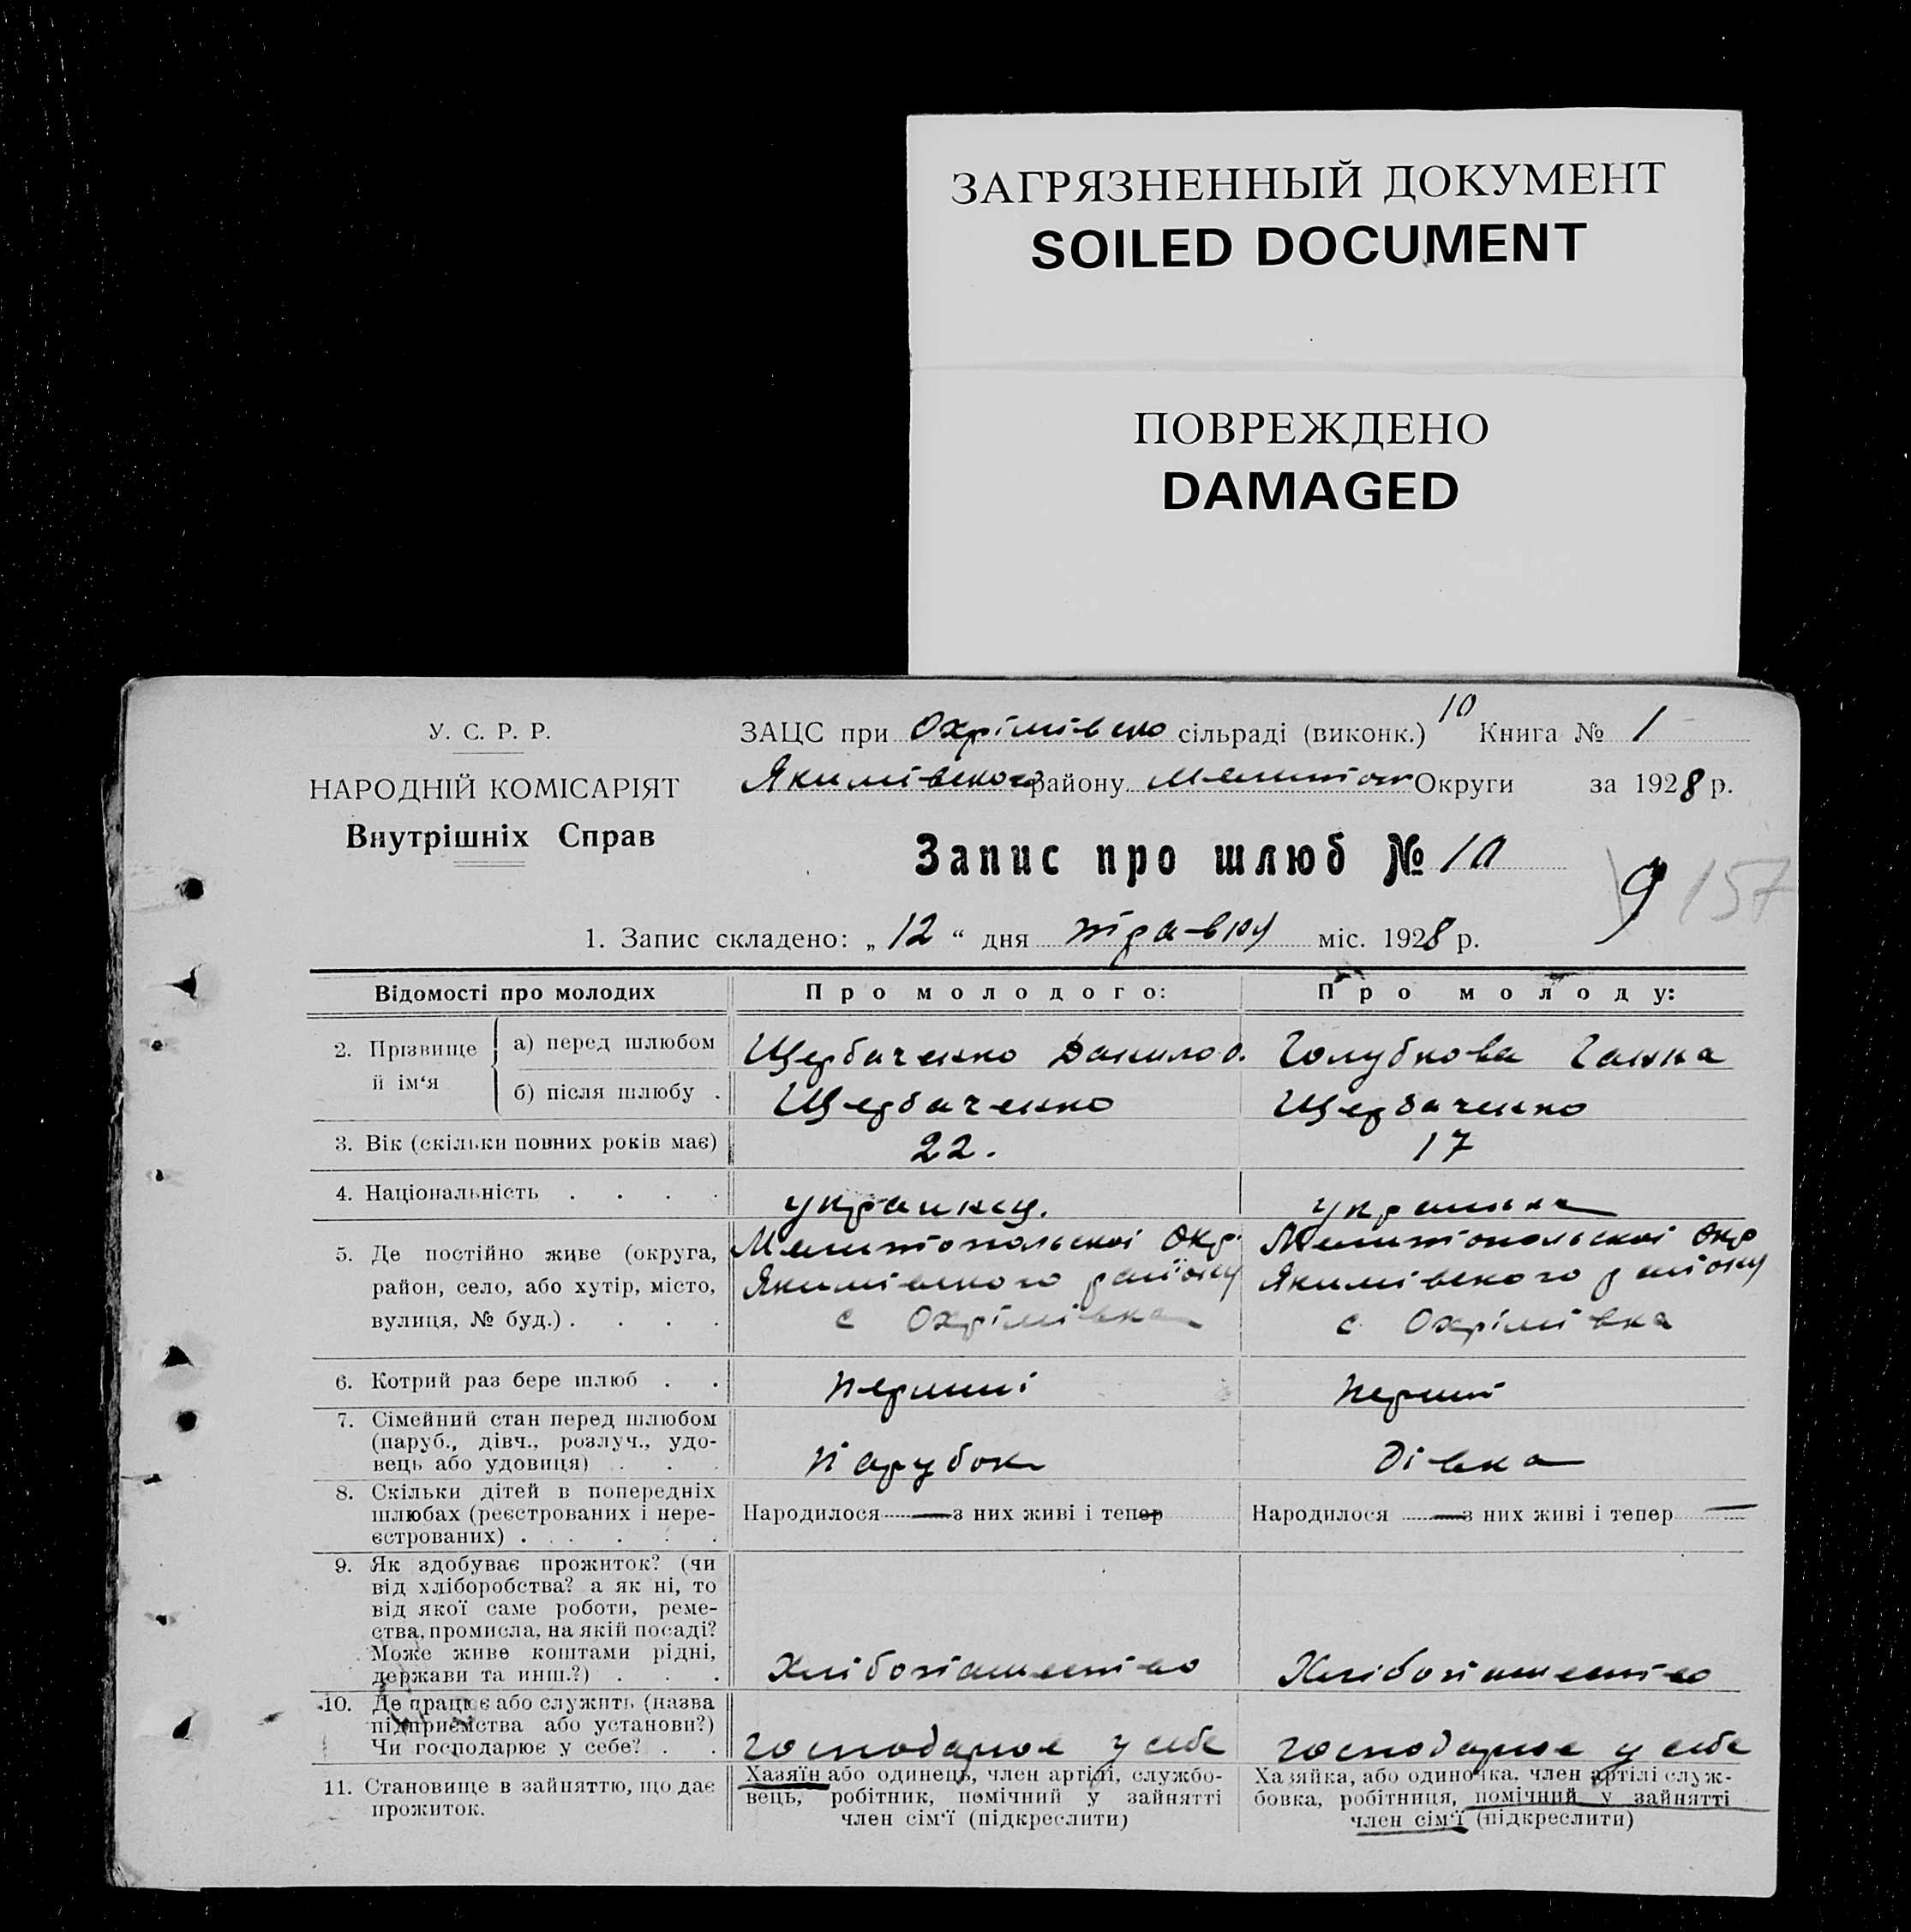 ЗАГРЯЗНЕННЫЙ ДОКУМЕНТ
SOILED DOCUMENT
ПОВРЕЖДЕНО
DAMAGED
У. С. Р. Р.
НАРОДНІЙ КОМІСАРІЯТ
Внутрішніх Справ
10
ЗАЦС при Охрімівско сільраді (виконк.) Книга № 1
Якимівского району Мелитоп Округи за 1928 р.
Запис про шлюб № 10
9 157
1. Запис складено: „12“ дня травню міс. 1928 р.
Відомості про молодих
Про молодого:
Про молоду:
2. Прізвище й ім‘я
а) перед шлюбом
Щербаченко Данило О.
Голубкова Ганна
б) після шлюбу .
Щербаченко
Щербаченко
3. Вік (скільки повних років має)
22.
17
4. Національність . . . .
украинец.
украинка
5. Де постійно живе (округа,
район, село, або хутір, місто,
вулиця, № буд.) . . . .
Мелитопольскої Окр.
Якимівского району
с Охрімівка
Мелитопольскої Окр
Якимівского району
с. Охрімівка
6. Котрий раз бере шлюб . .
перший
перший
7. Сімейний стан перед шлюбом
(паруб., дівч., розлуч., удо-
вець або удовиця) . . .
Парубок
Дівка
8. Скільки дітей в попередніх
шлюбах (реєстрованих і нере-
єстрованих) . . . . .
Народилося — з них живі і тепер —
Народилося — з них живі і тепер —
9. Як здобуває прожиток? (чи
від хліборобства? а як ні, то
від якої саме роботи, реме-
ства, промисла, на якій посаді?
Може живе коштами рідні,
держави та инш.?) . . .
Хлібопашество
Хлібопашество
10. Де працює або служить (назва
підприємства або установи?)
Чи господарює у себе? . .
господарює у себе
господарює у себе
11. Становище в зайняттю, що дає
прожиток.
Хазяїн або одинець, член артілі, службо-
вець, робітник, помічний у зайнятті
член сім‘ї (підкреслити)
Хазяйка, або одиночка, член артілі служ-
бовка, робітниця, помічний у зайнятті
член сім‘ї (підкреслити)